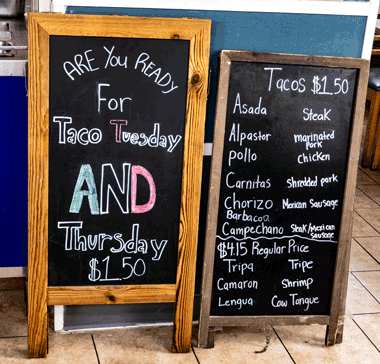 ARE YOU READY
For
Taco Tuesday
AND
Thursday
$1.50
Tacos $1.50
Asada Steak
Alpastor marinated pork
pollo chicken
Carnitas Shredded pork
Chorizo Mexican Sausage
Barbacoa
Campechano Steak/Mexican Sausage
$4.15 Regular Price
Tripa Tripe
Camaron Shrimp
Lengua Cow Tongue